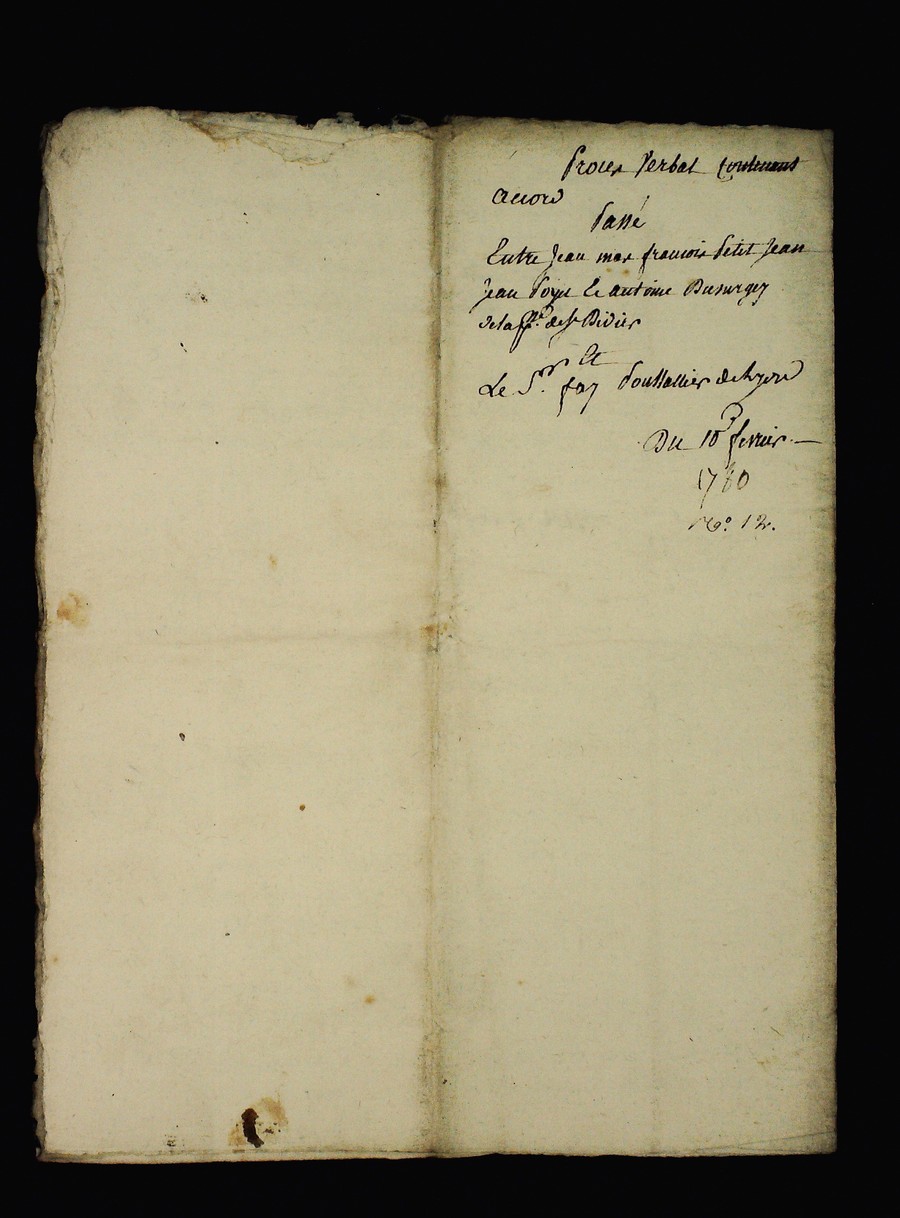 Proces Verbal Contenant
accord
Passé
Entre Jean mas francois Petit Jean
Jean Poyet et antoine Dusurgey
de la ppe. de St Didier
Et
Le Sr. fay Poussallier de Lyon
Du 10e fevrier
1780
No. 12.